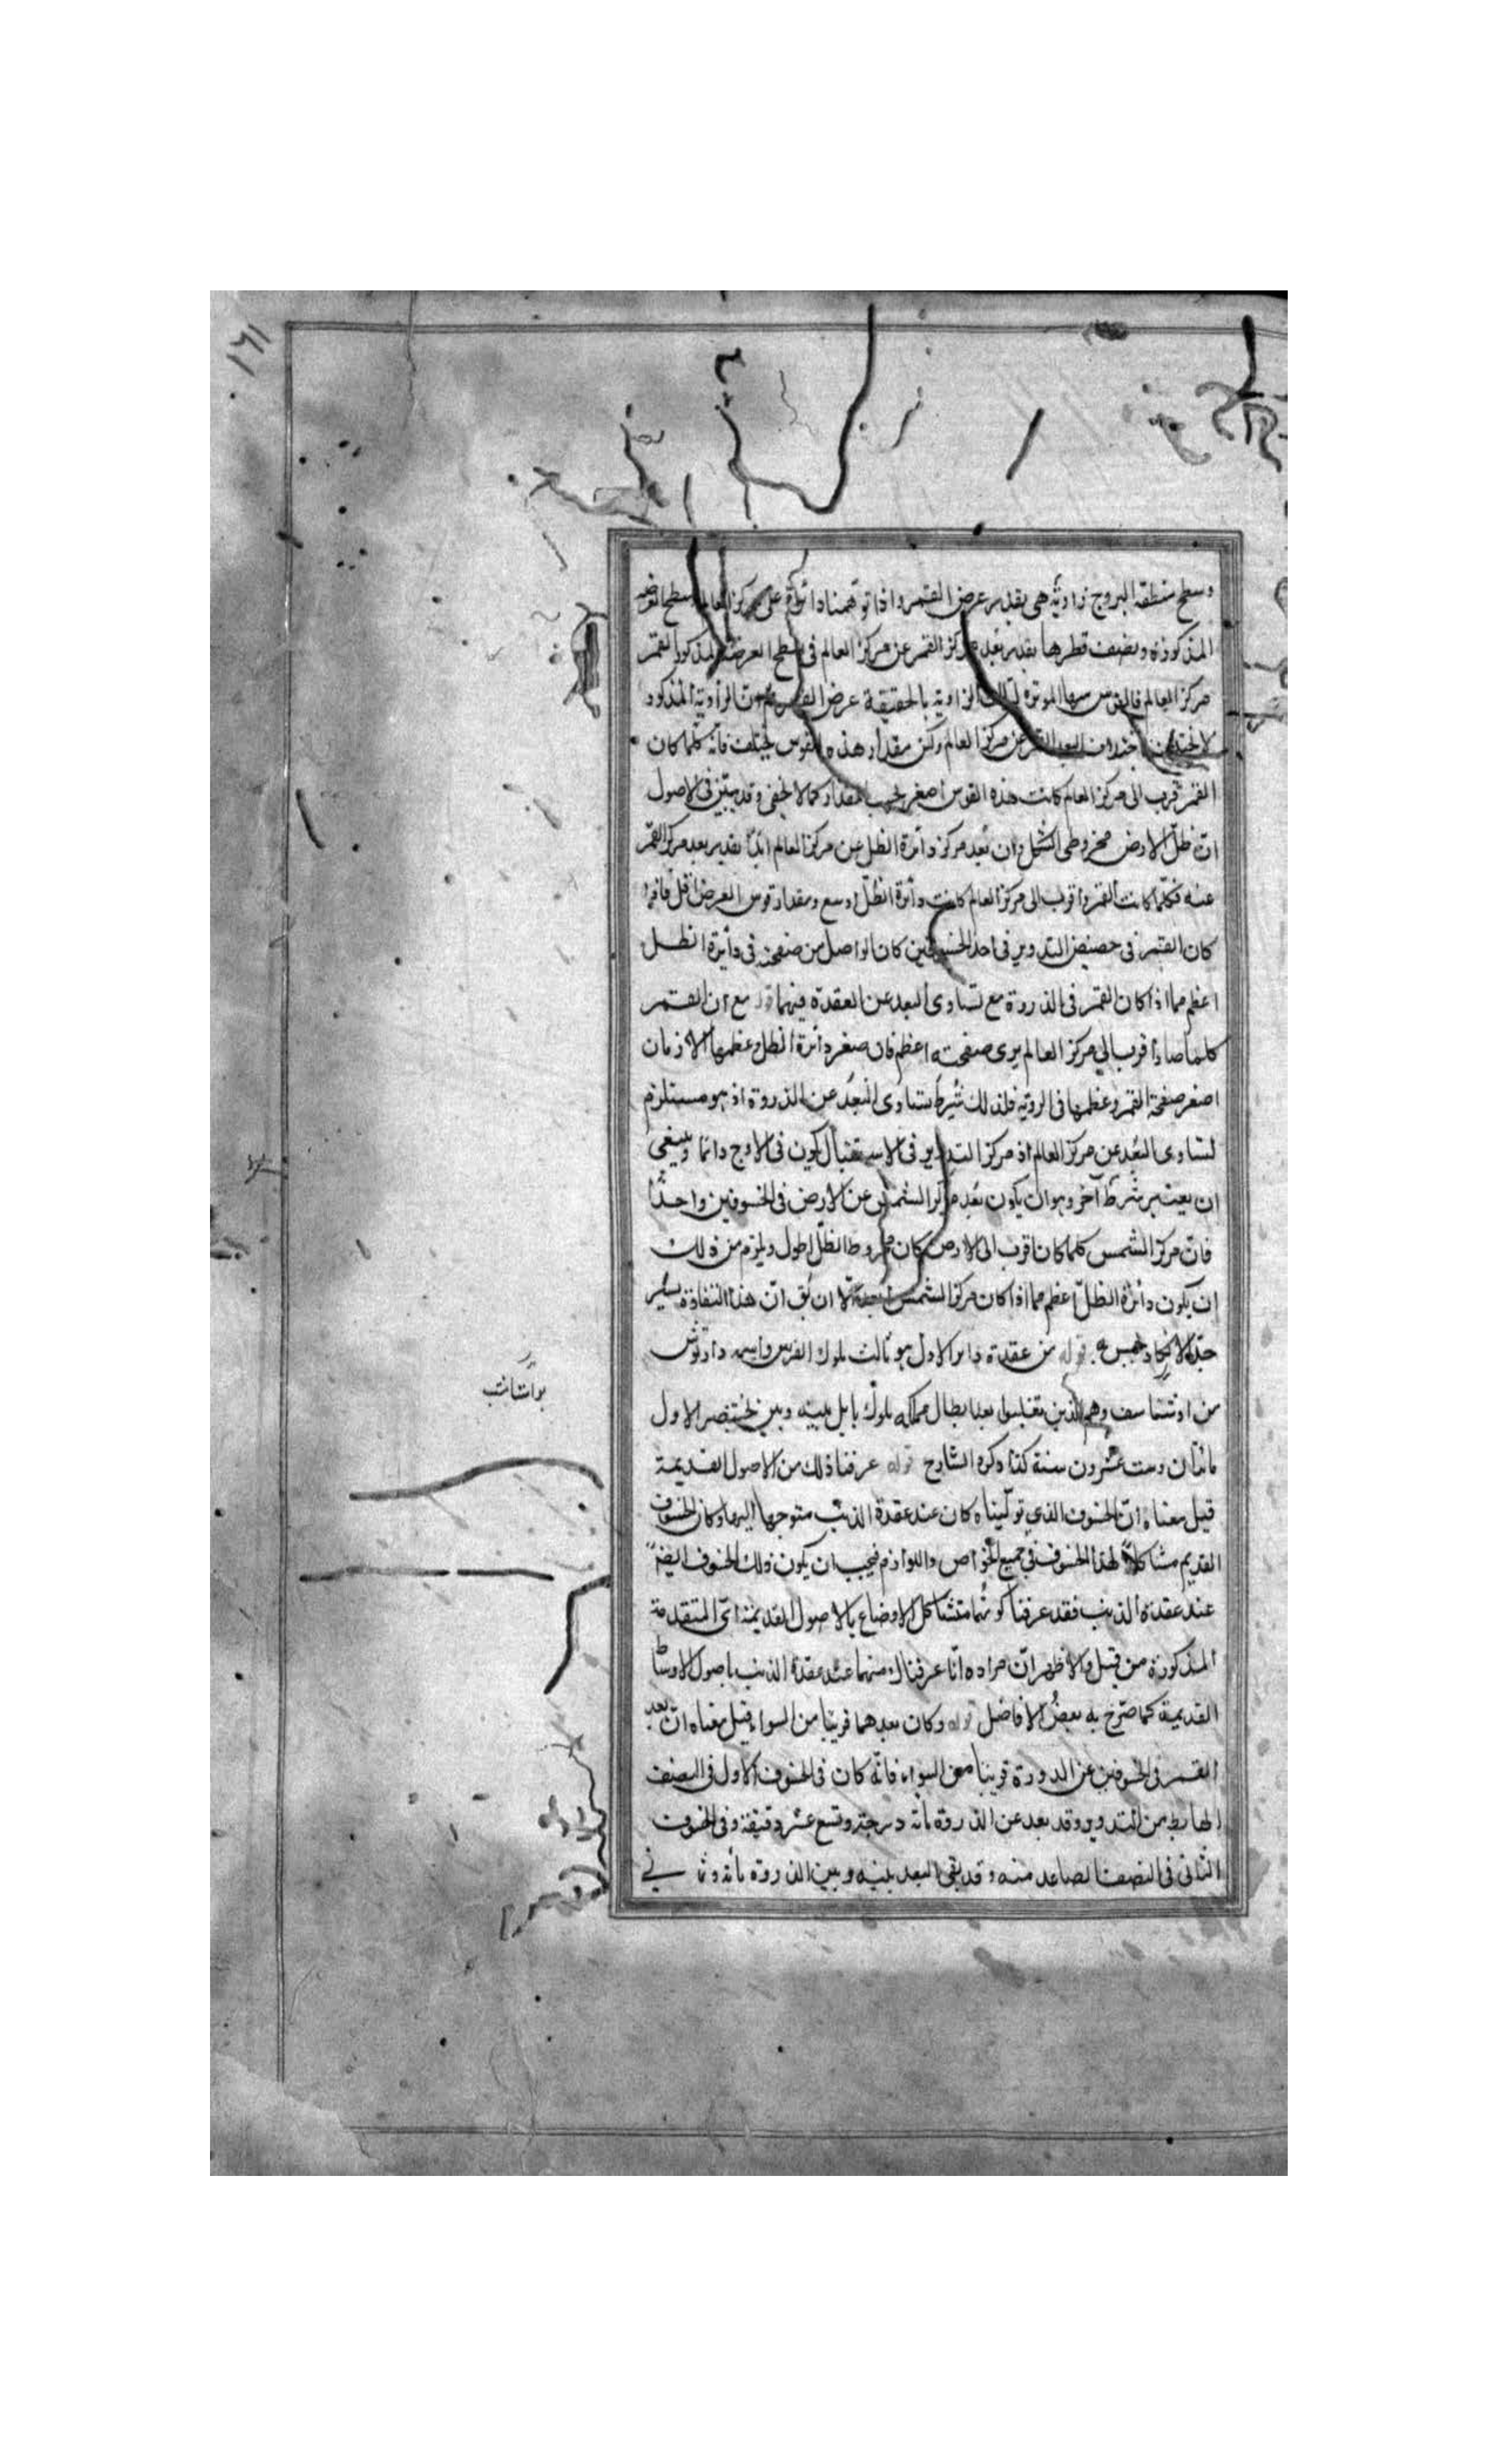 ١٦١
وسطح منطقة البروج زاوية هى بقدر عرض القمر واذا توهمنا دائرة على مركز العالم سطح العرضية
المذكورة ونصف قطرها بقدر بعد مركز القمر عن مركز العالم فى سطح العرضية المذكور القمر
مركز العالم فالقوس منها الموترة لتلك الزاوية بالحقيقة عرض القمر ثم ان الزاوية المذكور
لا تختلف باختلاف البعد القمر عن مركز العالم ولكن مقدار هذه القوس يختلف فانه كلما كان
القمر قرب الى مركز العالم كانت هذه القوس اصغر بحسب المقدار كما لا يخفى وقد تبين فى الاصول
ان ظل الارض مخروطى الشكل وان بعد مركز دائرة الظل عن مركز العالم ابدا بقدر بعد مركز القمر
عنه فكلما كانت القمر واقرب الى مركز العالم كانت دائرة الظل اوسع ومقدار قوس العرض اقل فاذا
كان القمر فى حضيض التدوير فى احد الخسوفين كان الواصل من صفحته فى دائرة الظل
اعظم مما اذا كان القمر فى الذروة مع تساوى البعد عن العقدة فيهما قوله مع ان القمر
كلما صار اقرب الي مركز العالم يرى صفحته اعظم فان صغر دائرة الظل وعظمها الازمان
اصغر صفحة القمر وعظمها فى الروية فلذلك شرط تساوى البعد عن الذروة اذ هو مستلزم
لتساوى البعد عن مركز العالم اذ مركز التدوير فى الاستقبال يكون فى الاوج دائما وينبغى
ان يعتبر شرط آخر وهو ان يكون بعد مركز الشمس عن الارض فى الخسوفين واحدا
فان مركز الشمس كلما كان اقرب الى الارض كان مخروط الظل اطول ويلزم من ذلك
ان يكون دائرة الظل اعظم مما اذا كان مركز الشمس ابعد الا ان يق ان هذا التفاوت يسير
جدا لا يكاد يحس به قوله من عقدة دارا الاول هو ثالث ملوك الفرس واسمه داريوش
بواشتاشب
من اوشتاسف وهم الذين تغلبوا بعد ابطال مملكة ملوك بابل بينه وبين بختنصر الاول
مائتان وست عشرون سنة كذا ذكره الشارح قوله عرفنا ذلك من الاصول القديمة
قيل معناه ان الخسوف الذى تولينا ه كان عند عقدة الذنب متوجها اليها وكان الخسوف
القديم مشاكلا لهذا الخسوف فى جميع الخواص واللوازم فيجب ان يكون ذلك الخسوف ايضا
عند عقدة الذنب فقد عرفنا كونهما متشاكل الاوضاع بالاصول القديمة اى المتقدمة
المذكورة من قبل والاظهر ان مراده انا عرفنا كونهما عند عقدة الذنب باصول الاوساط
القديمة كما صرح به بعض الافاضل قوله وكان بعدهما قريبا من السواء قيل معناه ان بعد
القمر فى الخسوفين عن الدورة قريبا من السواء فانه كان فى الخسوف الاول فى النصف
الهابط من التدوير وقد بعد عن الذروة مائة درجة وتسع عشر دقيقة وفى الخسوف
الثانى فى النصف الصاعد منه وقد بقى البعد بينه وبين الذروة مائة وثمانى